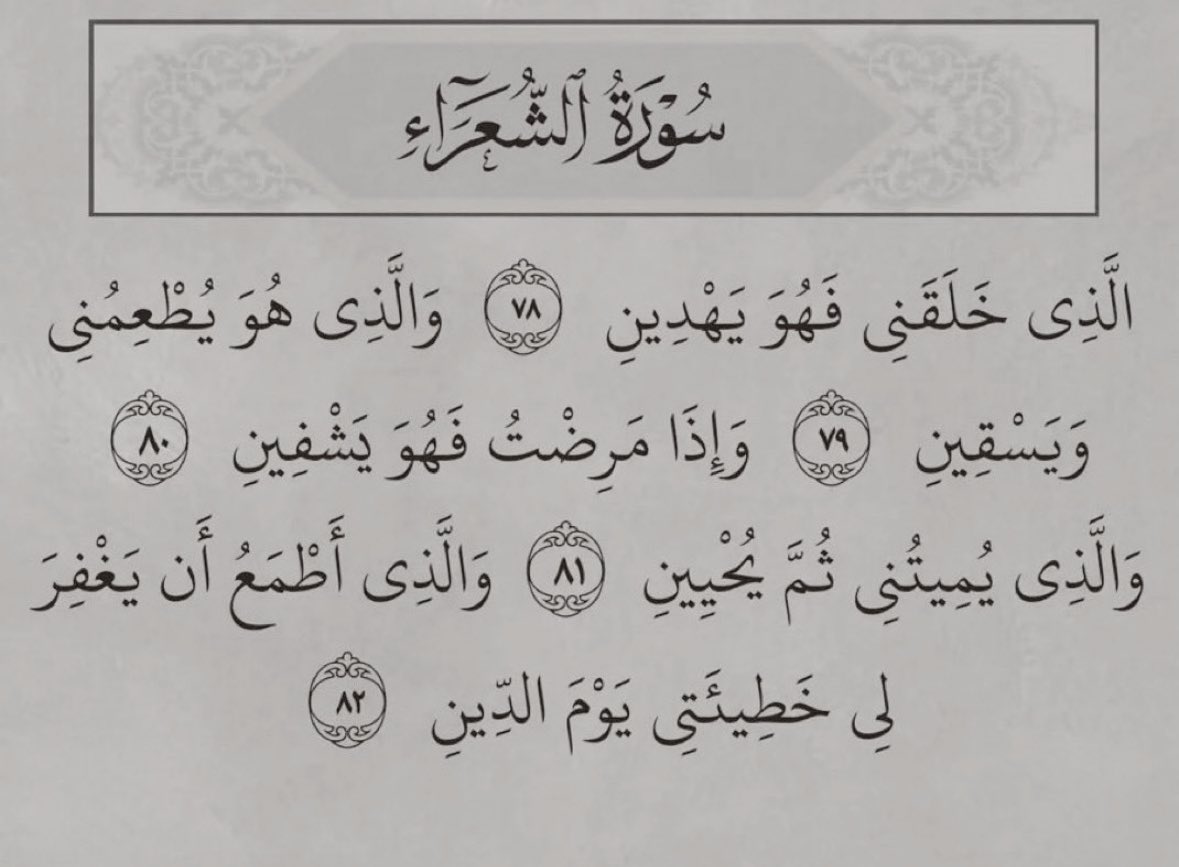 سُوْرَةُ ٱلشُّعَرَآءِ
الَّذِى خَلَقَنِى فَهُوَ يَهْدِينِ ٧٨ وَالَّذِى هُوَ يُطْعِمُنِى
وَيَسْقِينِ ٧٩ وَإِذَا مَرِضْتُ فَهُوَ يَشْفِينِ ٨٠
وَالَّذِى يُمِيتُنِى ثُمَّ يُحْيِينِ ٨١ وَالَّذِى أَطْمَعُ أَن يَغْفِرَ
لِى خَطِيئَتِى يَوْمَ الدِّينِ ٨٢